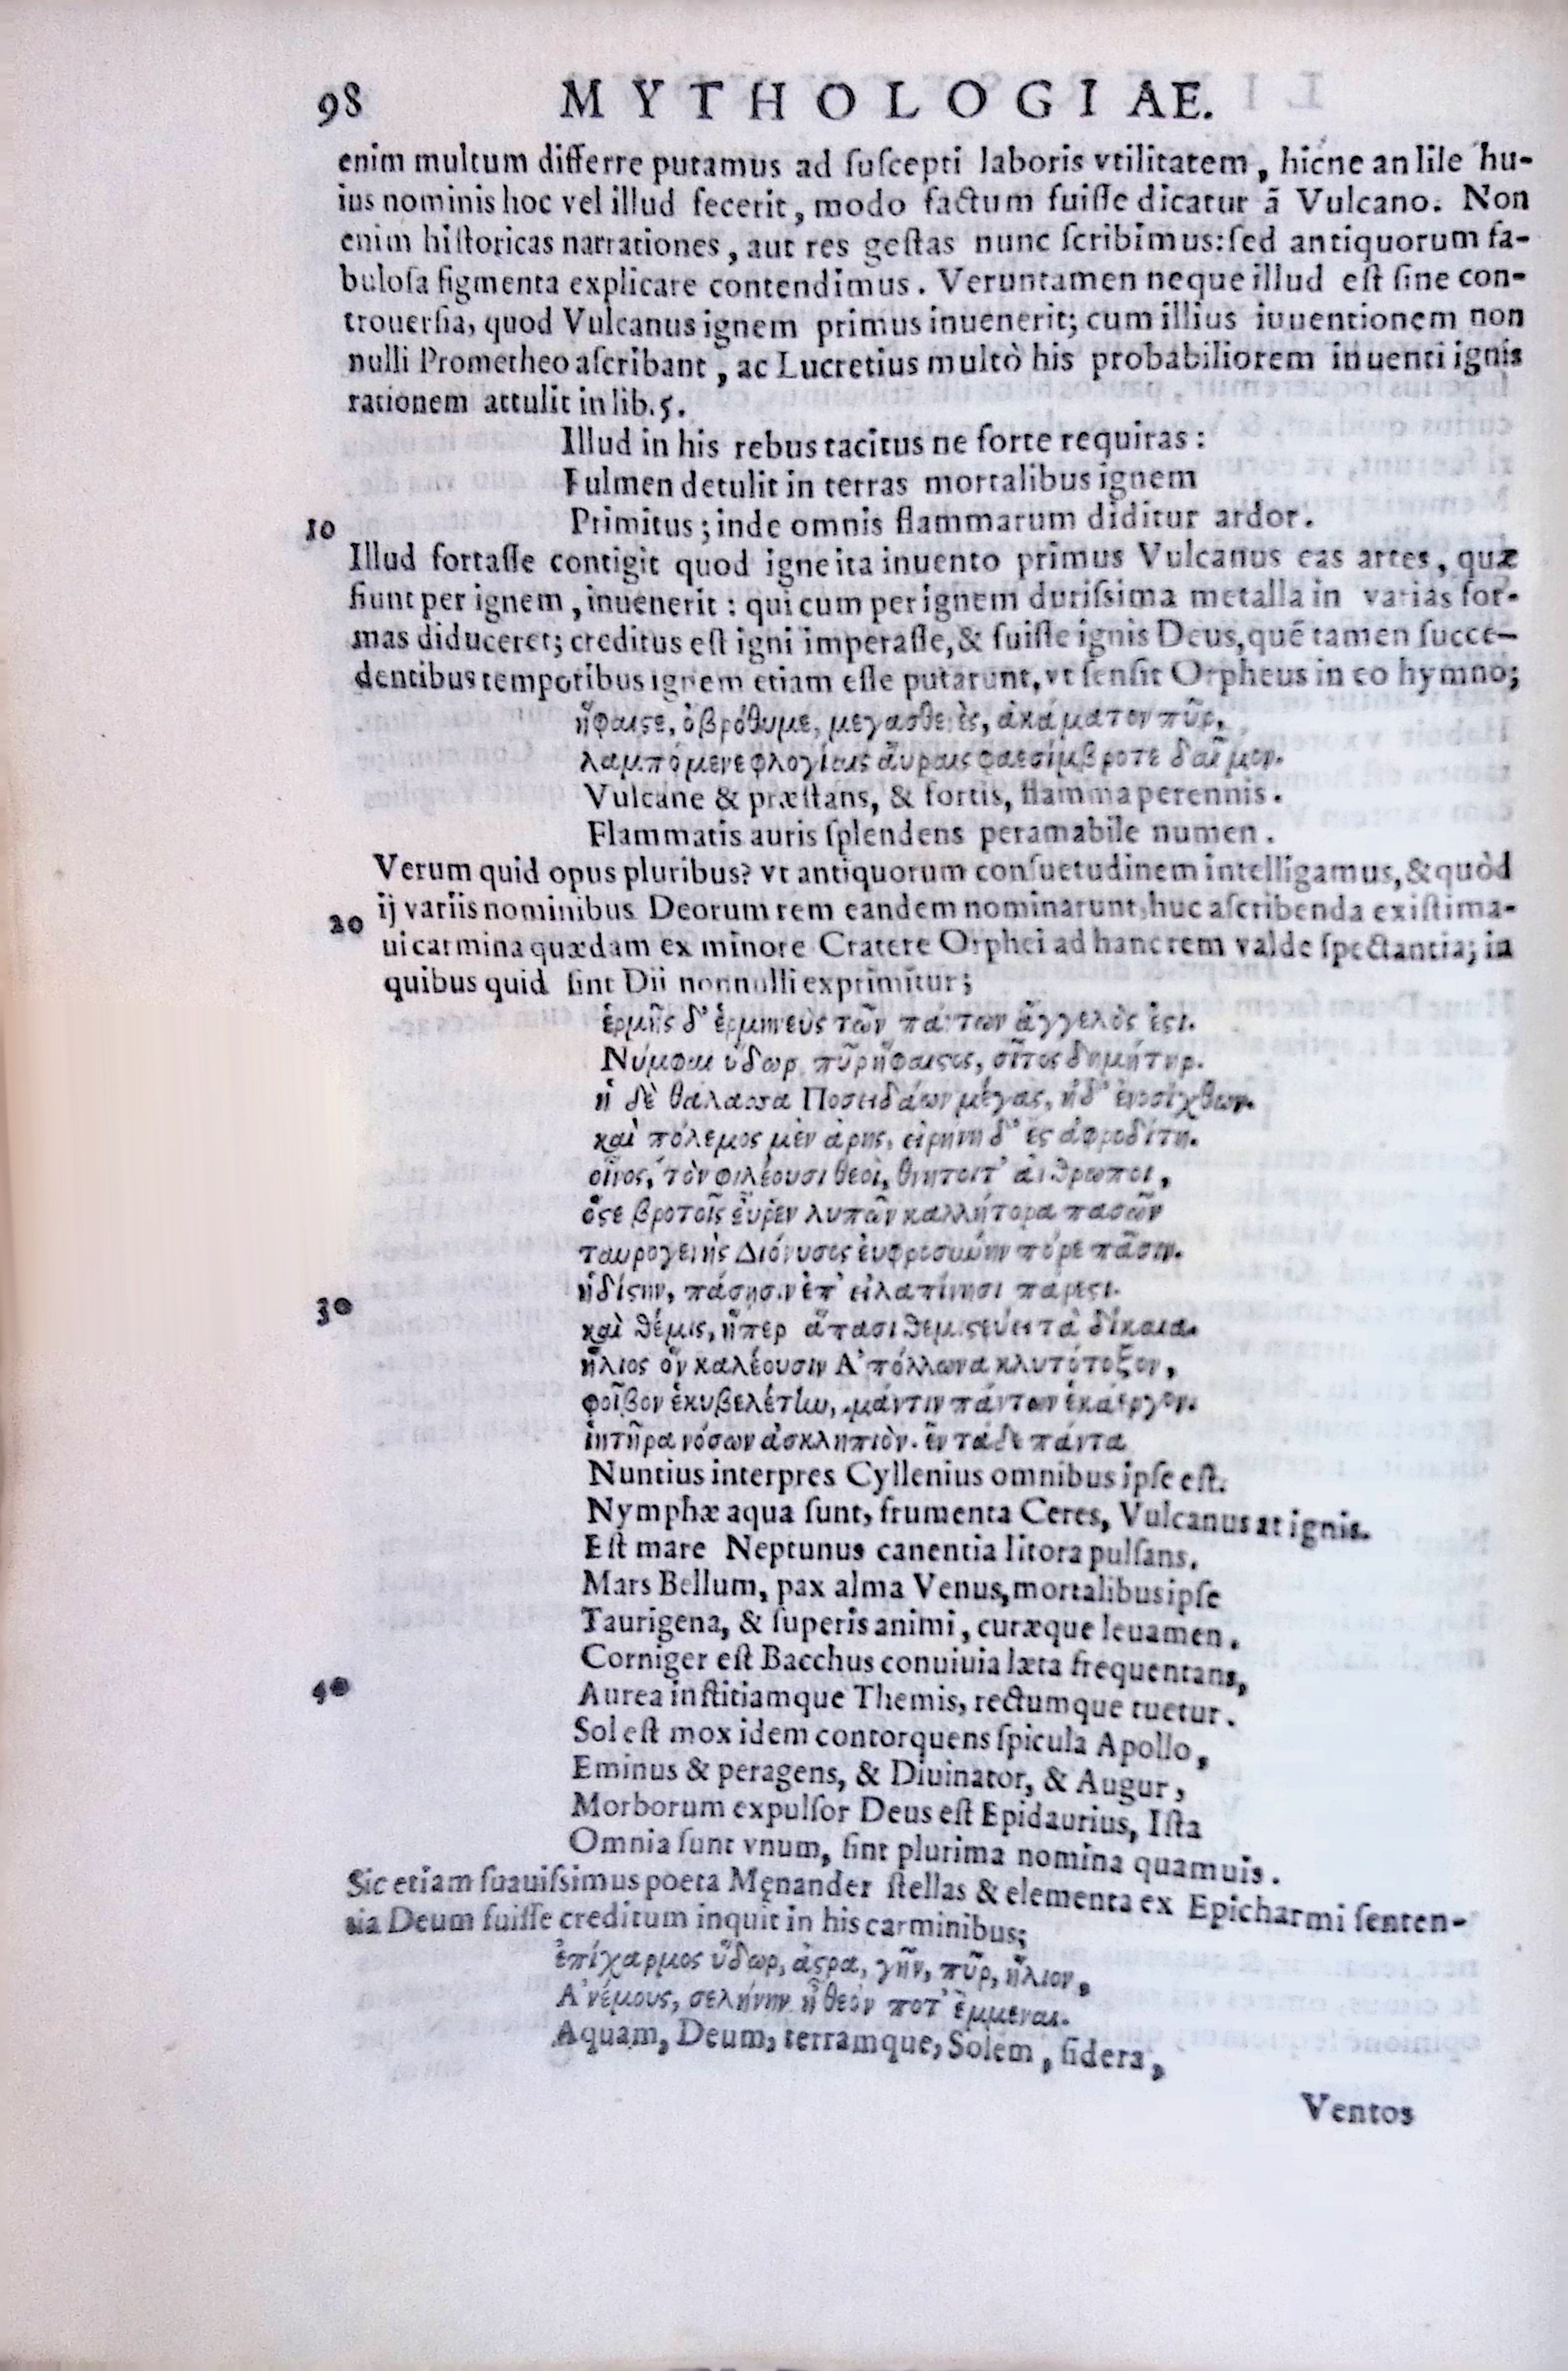 98 MYTHOLOGIAE.
enim multum differre putamus ad ſuſcepti laboris vtilitatem, hicne an lile hu-
ius nominis hoc vel illud fecerit, modo factum fuiſſe dicatur ã Vulcano. Non
enim hiſtoricas narrationes, aut res geſtas nunc ſcribimus: ſed antiquorum fa-
buloſa figmenta explicare contendimus. Veruntamen neque illud eſt ſine con-
trouerſia, quod Vulcanus ignem primus inuenerit; cum illius iuuentionem non
nulli Prometheo aſcribant, ac Lucretius multò his probabiliorem inuenti ignis
rationem attulit in lib. 5.
Illud in his rebus tacitus ne forte requiras:
Fulmen detulit in terras mortalibus ignem
10 Primitus; inde omnis flammarum diditur ardor.
Illud fortaſſe contigit quod igne ita inuento primus Vulcanus eas artes, quæ
fiunt per ignem, inuenerit: qui cum per ignem duriſsima metalla in varias for-
mas diduceret; creditus eſt igni imperaſſe, & fuiſſe ignis Deus, quẽ tamen ſucce-
dentibus temporibus ignem etiam eſſe putarunt, vt ſenſit Orpheus in eo hymno;
ἥφαιϛε, ὀβρόθυμε, μεγασθενὲς, ἀκάματον πῦρ,
λαμπόμενε φλογίαις ἄυραις φαεσίμβροτε δαῖμον.
Vulcane & præſtans, & fortis, flamma perennis.
Flammatis auris ſplendens peramabile numen.
Verum quid opus pluribus? vt antiquorum conſuetudinem intelligamus, & quòd
20 ij variis nominibus Deorum rem eandem nominarunt, huc aſcribenda exiſtima-
ui carmina quædam ex minore Cratere Orphei ad hanc rem valde ſpectantia; in
quibus quid ſint Dii nonnulli exprimitur;
ἑρμῆς δ' ἑρμηνεὺς τῶν πάντων ἄγγελὸς ἐϛι.
Νύμφαι ὕδωρ, πῦρ ἥφαιϛος, σῖτος δημήτηρ.
ἡ δὲ θάλασσα Ποσειδάων μέγας, ἠδ' ἐνοσίχθων.
καὶ πόλεμος μὲν ἄρης, εἰρήνη δ' ἐϛ ἀφροδίτη.
οἶνος, τὸν φιλέουσι θεοὶ, θνητοιτ' ἄνθρωποι,
ὅϛε βροτοῖς εὗρεν λυπῶν καλλήτορα πασῶν
ταυρογενὴς Διόνυσος ἐυφροσύνην πόρε πᾶσιν.
30 ἡδίϛην, πάσῃσιν ἐπ' εἰλαπίνησι πάρεϛι.
καὶ θέμις, ἥπερ ἅπασι θεμιϛεύει τὰ δίκαια.
ἥλιος ὃν καλέουσιν Ἀπόλλωνα κλυτότοξον,
φοῖβον ἑκυβελέτην, μάντιν πάντων ἑκάεργον.
ἰητῆρα νόσων ἀσκληπιὸν. ἓν τάδε πάντα
Nuntius interpres Cyllenius omnibus ipſe eſt.
Nymphæ aqua ſunt, frumenta Ceres, Vulcanus at ignis.
Eſt mare Neptunus canentia litora pulſans.
Mars Bellum, pax alma Venus, mortalibus ipſe
Taurigena, & ſuperis animi, curæque leuamen.
Corniger eſt Bacchus conuiuia læta frequentans,
40 Aurea inſtitiamque Themis, rectumque tuetur.
Sol eſt mox idem contorquens ſpicula Apollo,
Eminus & peragens, & Diuinator, & Augur,
Morborum expulſor Deus eſt Epidaurius, Iſta
Omnia ſunt vnum, ſint plurima nomina quamuis.
Sic etiam ſuauiſsimus poeta Męnander ſtellas & elementa ex Epicharmi ſenten-
tia Deum fuiſſe creditum inquit in his carminibus;
ἐπίχαρμος ὕδωρ, ἄϛρα, γῆν, πῦρ, ἥλιον,
Ἀνέμους, σελήνην ἢ θεὸν ποτ' ἔμμεναι.
Aquam, Deum, terramque, Solem, ſidera,
Ventos